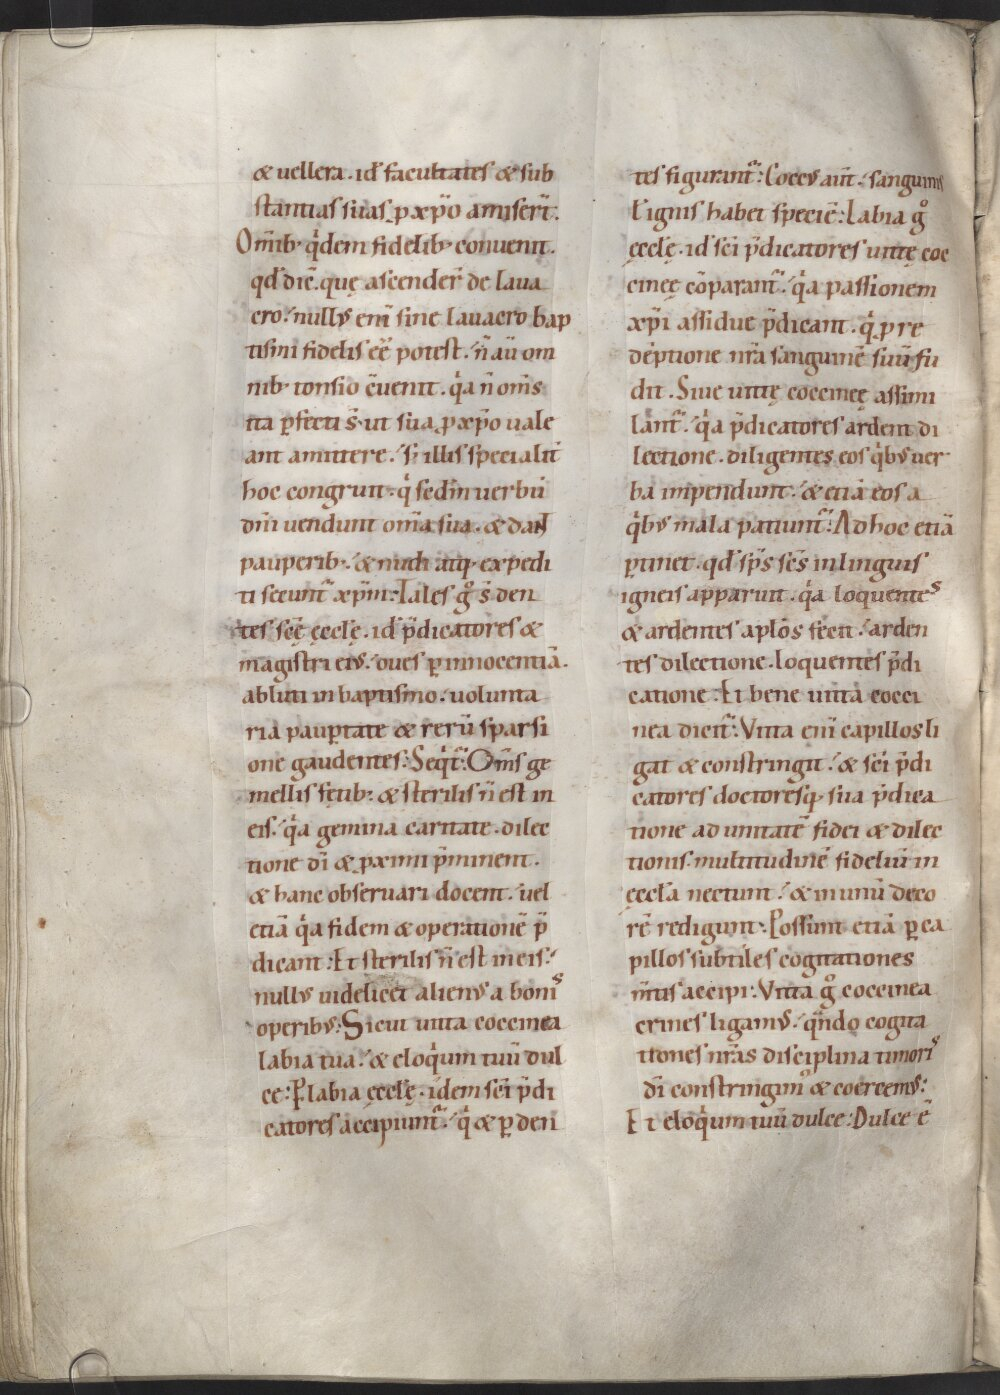 & uellera . id̄ facultates & sub
stantias suas ꝓ xp̄o amiser̄t.
Om̄ib; qͥdem fidelib; conuenit.
qd̄ diē. quę ascender̄ de laua
cro. nullꝰ eni̅ sine lauacro bap
tismi fidelis eē potest. n̄ aū om
nib; tonsio ēuenit. qͥa n̄ om̄s
ita ꝑfecti s̄. ut sua ꝓ xp̄o uale
ant amittere. s; illis specialit̄
hoc congruit. qͥ sed̄m uerbū
dn̄i uendunt om̄a sua. & dant
pauperib;. & nudi atq; expedi
ti secunt᷑ xp̄m: Tales gͦ s̄ den
tes scę̄ ęccłę. id̄ p̄dicatores &
magistri eiꝰ. oues ꝑ innocentiā.
abluti in baptismo. uolunta
ria pauꝑtate & rerū sparsi
one gaudentes: Seqͥt᷑: Om̄s ge
mellis fętib;. & sterilis n̄ est in
eis. qͥa gemina caritate. dilec
tione dī & ꝓximi p̄minent.
& hanc obseruari docent. uel
etiā qͥa fidem & operationē p̄
dicant: Et sterilis n̄ est in eis.
nullꝰ uidelicet alienꝰ a bonis
operibꝰ: Sicut uitta coccinea
labia tua. & eloqͥum tuū dul
ce: P labia ęccłę. idem scī p̄di
catores accipiunt᷑. qͥ & ꝑ den
tes figurant᷑: Coccꝰ aūt. sanguinis
t ignis habet speciē: Labia gͦ
ęccłę. id̄ scī p̄dicatores uittę coc
cineę cōparant᷑. qͥa passionem
xp̄i assidue p̄dicant. qͥ ꝓ re
dēptione nr̄a sanguinē suū fu
dit. Siue uittę coccineę assimi
lant᷑. qͥa p̄dicatores ardent di
lectione. diligentes eos qͥbꝰ uer
ba impendunt. & etiā eos a
qͥbꝰ mala patiunt᷑: Ad hoc etiā
ꝑtinet. qd̄ sp̄s sc̄s in linguis
igneis apparuit. qͥa loquentes
& ardentes apl̄os fecit. arden
tes dilectione. loquentes p̄di
catione: Et bene uitta cocci
nea dicit᷑: Vitta eni̅ capillos li
gat & constringit. & scī p̄di
catores doctoresq; sua p̄dica
tione ad unitatē fidei & dilec
tionis. multitudinē fideliū in
ęccła nectunt. & in unū deco
rē redigunt: Possunt etiā ꝑ ca
pillos subtiles cogitationes
m̄tis accipi: Vitta gͦ coccinea
crines ligamꝰ. qn̄do cogita
tiones nr̄as disciplina timoris
dī constringimꝰ & coercemꝰ:
Et eloqͥum tuū dulce: Dulce ē